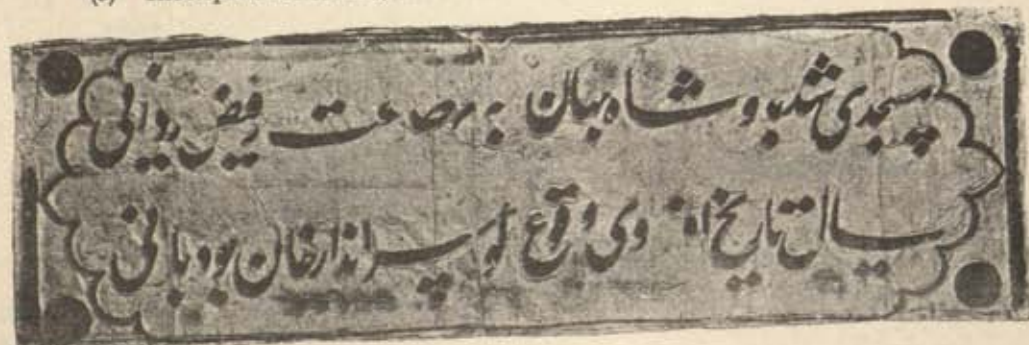 چو مسجدی شد بدو شاه جهان به هر صاعت فیض روانی
سال تاریخ او ز وی وقوع کو سپراندازخان بود بانی